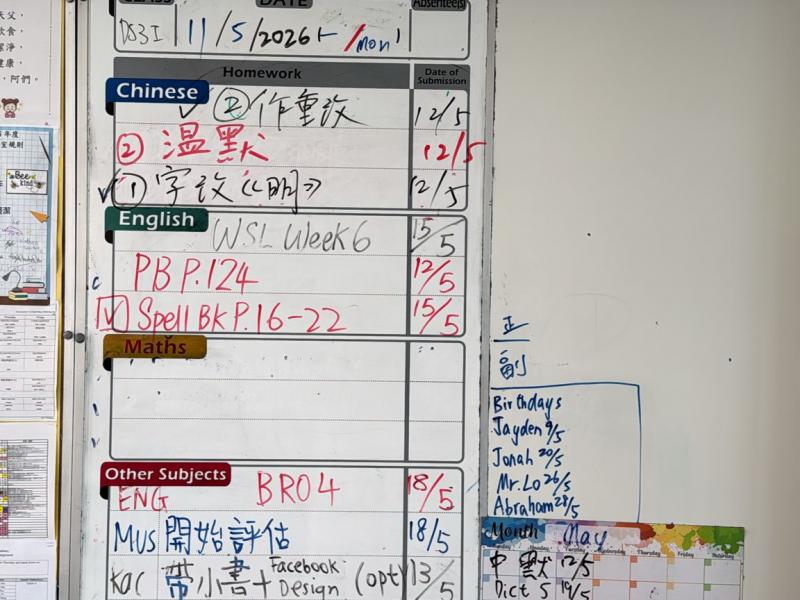 DATE
Absentee(s)
DS3I 11/5/2026 Mon
Homework
Date of Submission
Chinese
② 作重改 12/5
② 溫默 12/5
① 字改《明》 12/5
English
WSL Week 6 15/5
PB P.124 12/5
Spell BK P.16-22 15/5
Maths
Other Subjects
ENG BRO4 18/5
MUS 開始評估 18/5
帶小書+ Facebook Design (opt) 13/5
正
副
Birthdays
Jayden 9/5
Jonah 20/5
Mr. Lo 26/5
Abraham 28/5
Month May
Tuesday Wednesday Thursday Friday Saturday
中 默 12/5
Dict 5 19/5
Bee kind